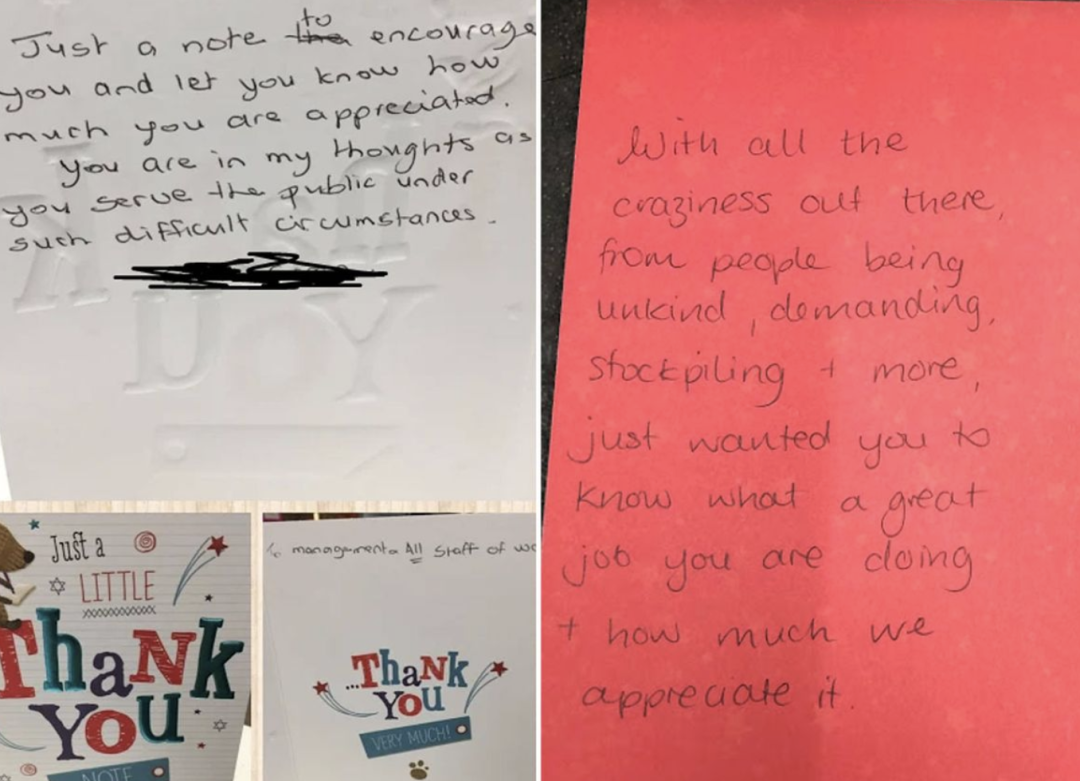 Just a note to encourage
you and let you know how
much you are appreciated.
You are in my thoughts as
you serve the public under
such difficult circumstances.
Just a
LITTLE
Thank
You
NOTE
To management & All Staff of
...Thank
You
VERY MUCH!
With all the
craziness out there,
from people being
unkind, demanding,
stockpiling + more,
just wanted you to
know what a great
job you are doing
+ how much we
appreciate it.